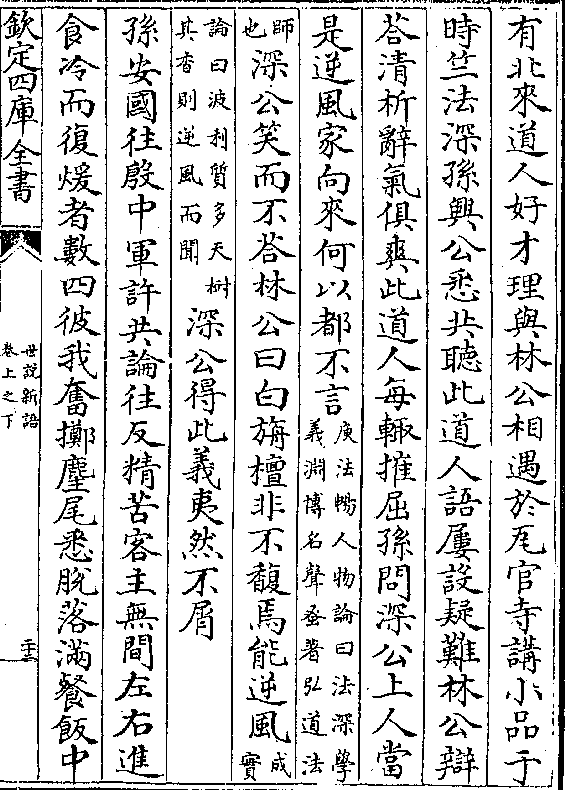 有北來道人好才理與林公相遇於瓦官寺講小品于
時竺法深孫興公悉共聽此道人語屢設疑難林公辯
荅清析辭氣俱爽此道人每輙摧屈孫問深公上人當
是逆風家向來何以都不言
庾法暢人物論曰法深學
義淵博名聲蚤著弘道法
師
也
深公笑而不荅林公曰白旃檀非不馥焉能逆風
成
實
論曰波利質多天樹
其香則逆風而聞
深公得此義夷然不屑
孫安國往殷中軍許共論往反精苦客主無間左右進
食冷而復煖者數四彼我奮擲麈尾悉脫落滿餐飯中
欽定四庫全書
世說新語
卷上之下
二十三